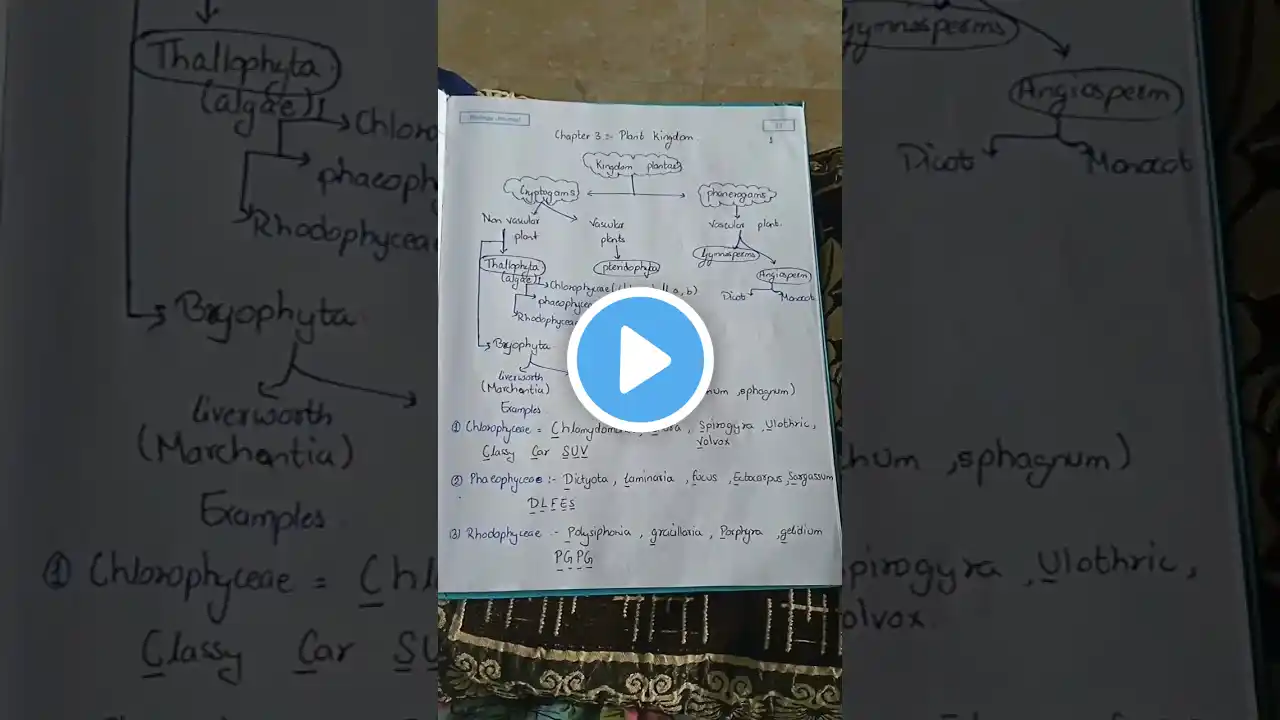 Biology Journal
Chapter 3 :- Plant Kingdom.
Kingdom plantae
Cryptogams
phanerogams
Non vascular plant
Vascular plants
Vascular plants.
Thallophyta (algae)
pteridophyta
Gymnosperms
Angiosperm
Dicot
Monocot
Chlorophyceae a, b)
phaeophyceae
Rhodophyceae
Bryophyta
liverworth (Marchantia)
, sphagnum)
Examples.
① Chlorophyceae = Chlamydomonas, , Spirogyra, Ulothric, Volvox
Classy Car SUV
② Phaeophyceae :- Dictyota, laminaria, fucus, Ectocarpus, Sargassum
DLFES
(3) Rhodophyceae - Polysiphonia, gracillaria, Porphyra, gelidium
PGPG